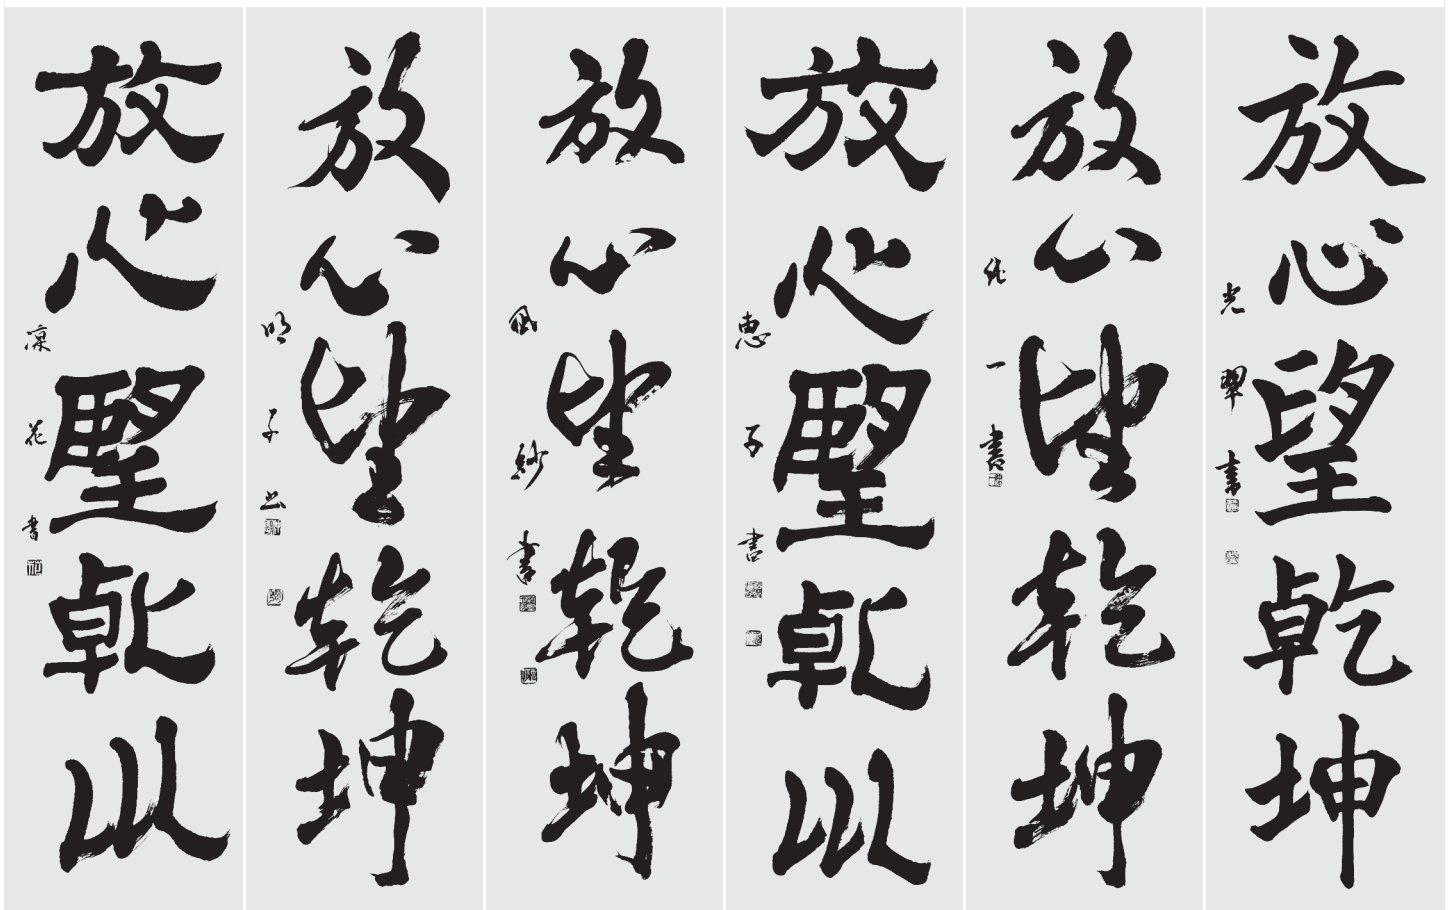 放心望乾坤
光翠書
放心望乾坤
一書
放心望乾巛
恵子書
放心望乾坤
紗書
放心望乾坤
明子書
放心望乾巛
涼花書